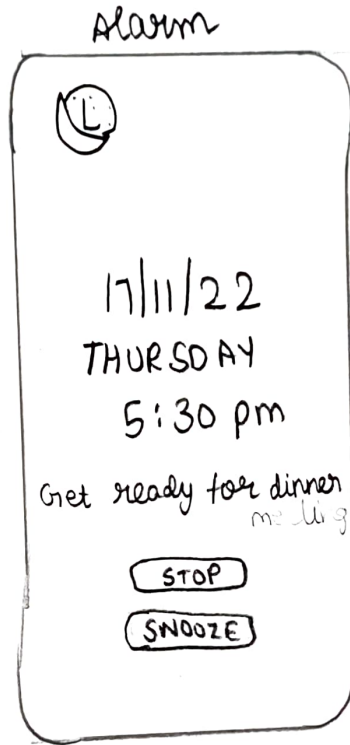 Alarm
L
17/11/22
THURSDAY
5:30 pm
Get ready for dinner
meeting
STOP
SNOOZE